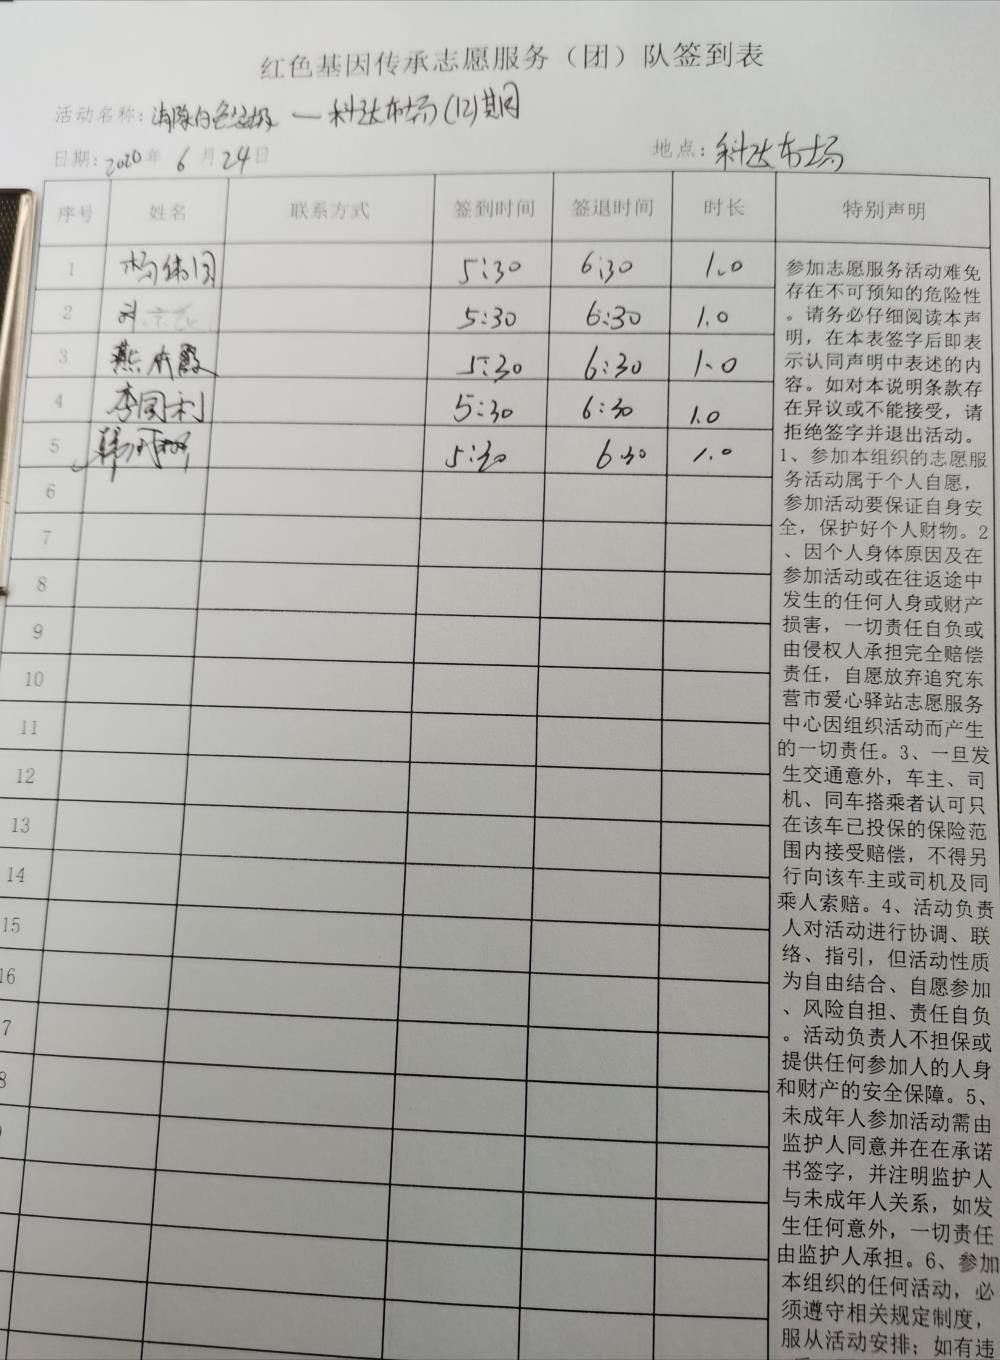 红色基因传承志愿服务（团）队签到表
活动名称：消除白色垃圾 — 科达市场(12)期
日期：2020年 6月24日 地点：科达市场
序号 姓名 联系方式 签到时间 签退时间 时长 特别声明
1 杨伟国 5:30 6:30 1.0
2 刘 5:30 6:30 1.0
3 燕 霞 5:30 6:30 1.0
4 李国利 5:30 6:30 1.0
5 韩 5:30 6:30 1.0
6
7
8
9
10
11
12
13
14
15
16
7
8
参加志愿服务活动难免
存在不可预知的危险性
。请务必仔细阅读本声
明，在本表签字后即表
示认同声明中表述的内
容。如对本说明条款存
在异议或不能接受，请
拒绝签字并退出活动。
1、参加本组织的志愿服
务活动属于个人自愿，
参加活动要保证自身安
全，保护好个人财物。2
、因个人身体原因及在
参加活动或在往返途中
发生的任何人身或财产
损害，一切责任自负或
由侵权人承担完全赔偿
责任，自愿放弃追究东
营市爱心驿站志愿服务
中心因组织活动而产生
的一切责任。3、一旦发
生交通意外，车主、司
机、同车搭乘者认可只
在该车已投保的保险范
围内接受赔偿，不得另
行向该车主或司机及同
乘人索赔。4、活动负责
人对活动进行协调、联
络、指引，但活动性质
为自由结合、自愿参加
、风险自担、责任自负
。活动负责人不担保或
提供任何参加人的人身
和财产的安全保障。5、
未成年人参加活动需由
监护人同意并在在承诺
书签字，并注明监护人
与未成年人关系，如发
生任何意外，一切责任
由监护人承担。6、参加
本组织的任何活动，必
须遵守相关规定制度，
服从活动安排；如有违